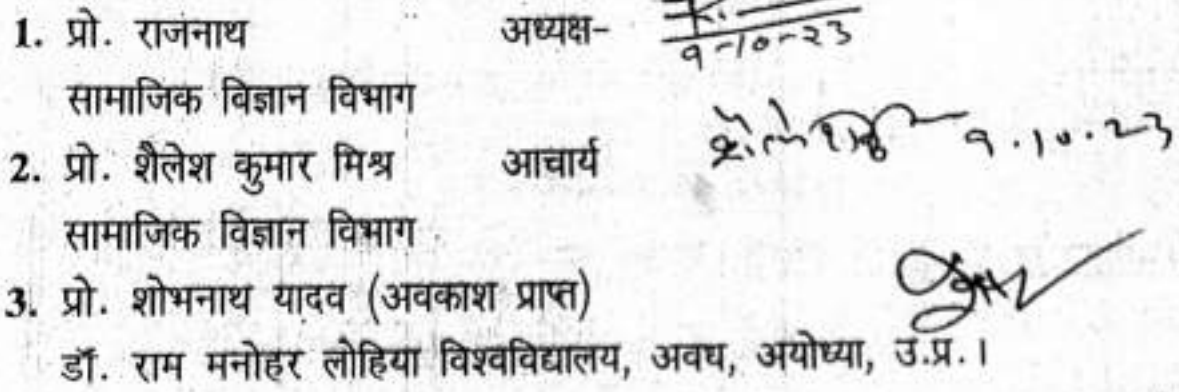 1. प्रो. राजनाथ अध्यक्ष-
9-10-23
सामाजिक विज्ञान विभाग
2. प्रो. शैलेश कुमार मिश्र आचार्य 9.10.23
सामाजिक विज्ञान विभाग
3. प्रो. शोभनाथ यादव (अवकाश प्राप्त)
डॉ. राम मनोहर लोहिया विश्वविद्यालय, अवध, अयोध्या, उ.प्र.।